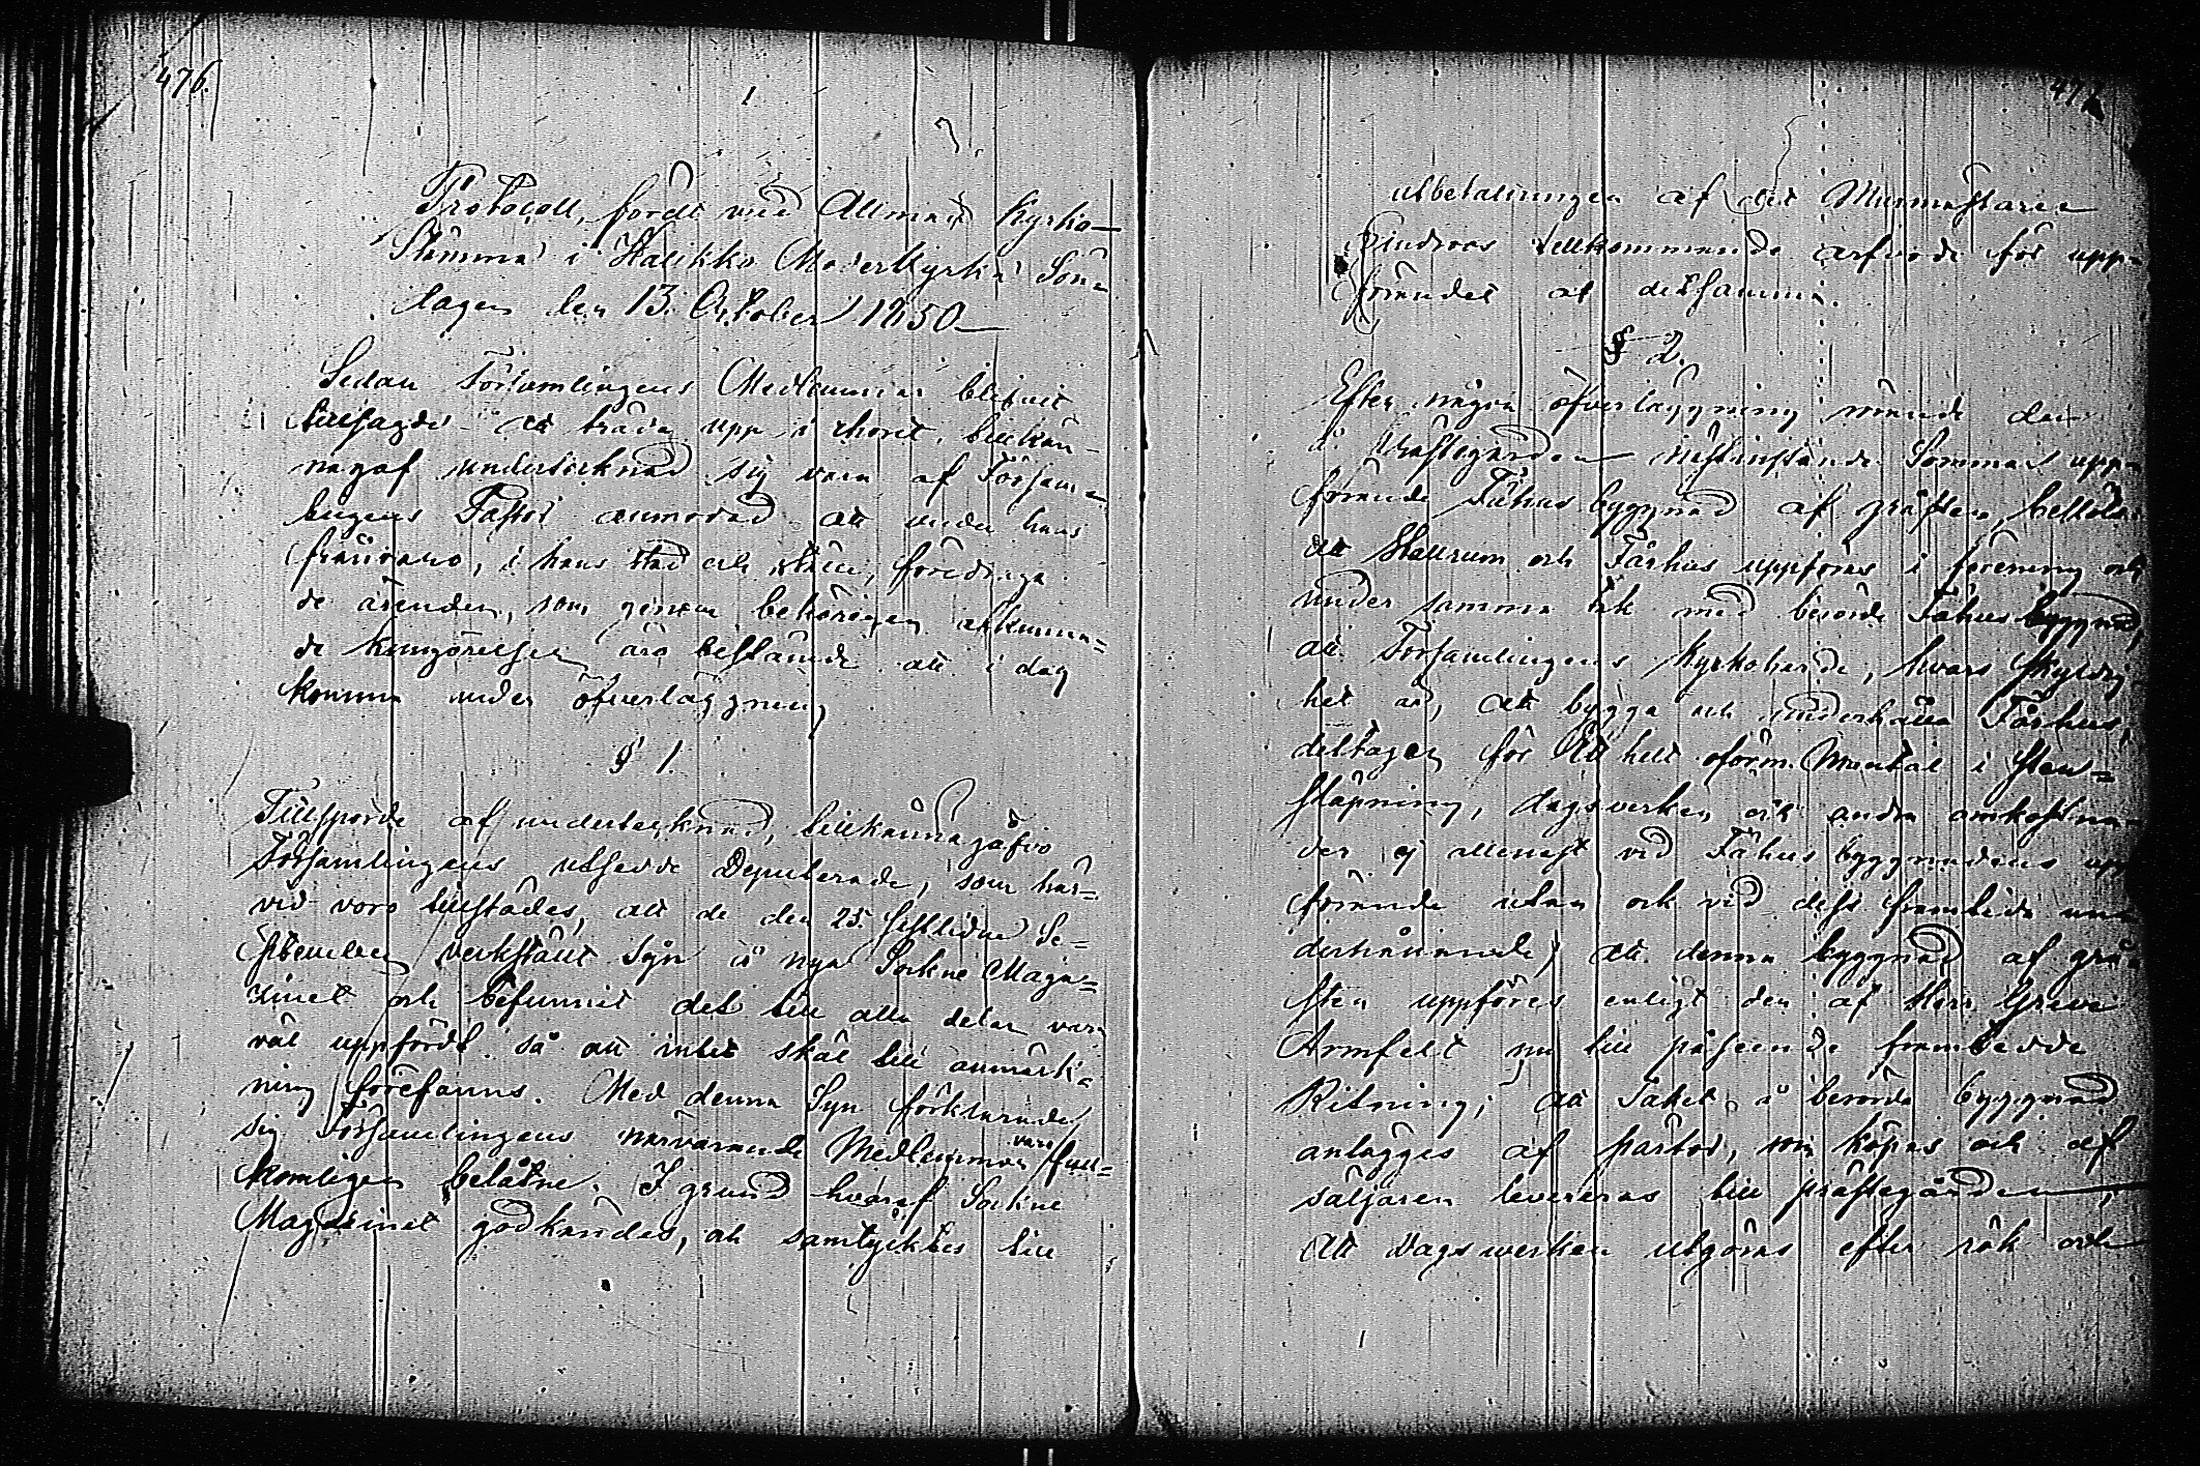 476.
Protocoll, fördt vid Allmän Kyrko-
Stämma i Halikko Moderkyrka Sön-
dagen den 13. October 1850
Sedan Församlingens Medlemmar blifvit
tillsagde att träda upp i choret, tillkän-
nagaf undertecknad sig vara af Försam-
lingens Pastor anmodad att under hans
frånvaro, i hans stad och ställe, föredraga
de ärenden, som genom behörigen afkunna=
de kungörelser äro bestämde att i dag
komma under öfverläggning
§ 1.
Tillsporde af undertecknad, tillkännagåfvo
Församlingens utsedde Deputerade, som här=
vid voro tillstädes, att de den 25. sistlidne Se=
ptember verkställt syn å nya Sockne Maga=
zinet och befunnit det till alla delar vara
väl uppfördt så att intet skäl till anmärk=
ning förefanns. Med denna Syn förklarade
sig Församlingens närvarande Medlemmar vara full=
komligen belåtne. I grund hvaraf Sockne
Magazinet godkändes, och samtycktes till
477
utbetalningen af det Murmästaren
Lindroos tillkommande arfvode för upp=
förandet af detsamma.
§ 2.
Efter någon öfverläggning rörande den
å Prästegården nästinstående Sommar upp=
förande Fähus byggnad af gråsten, beslöts
att Stallrum och Fårhus uppföres i förening och
under samma tak med berörde Fähus byggnad,
att Församlingens Kyrkoherde, hvars skyldig
het är, att bygga och underhålla Fårhus,
deltager för Ett helt oförm. Mantal i sten=
släpning, dagsverken och andra omkostna=
der ej allenast vid Fähus byggnadens upp
förande utan ock vid dess framtida un
derhållande, att denna byggnad af grå=
sten uppföres enligt den af Herr Greve
Armfelt nu till påseende framtedde
Ritning; att Taket å berörde byggnad
anlägges af pärtor, som köpes och af
säljaren levereras till prästegården,
Att Dagsverken utgöras efter rök och